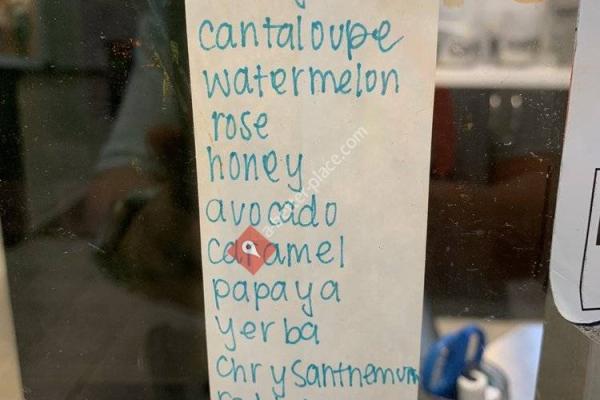 cantaloupe
watermelon
rose
honey
avocado
caramel
papaya
yerba
chrysanthemum